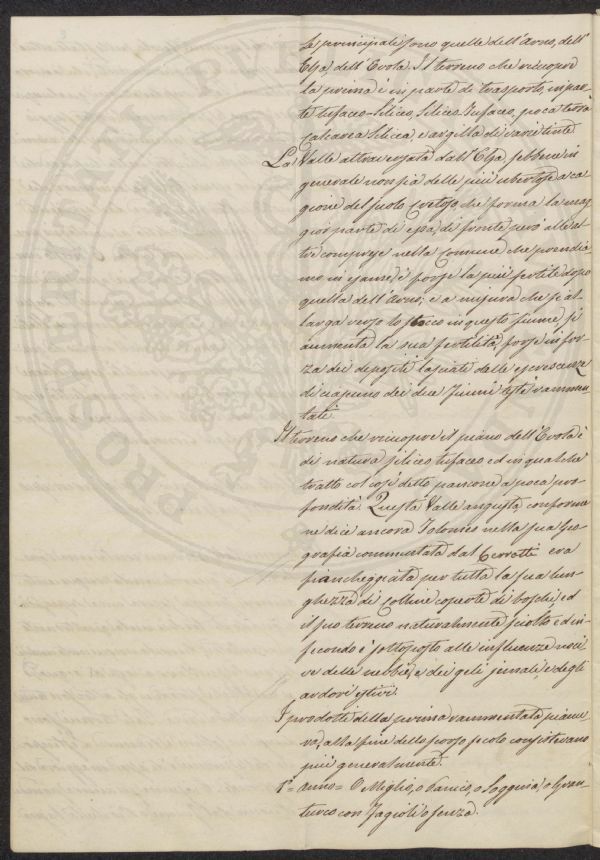 Le principali sono quelle dell'Arno, dell'
Elsa, dell'Evola. Il terreno che ricuopre
la prima è in parte di trasporto, in par-
te tufaceo-Siliceo, Siliceo Tufaceo, poca terra
Calcarea Silicea, e argilla di varie tinte
La Valle attraversata dall'Elsa, sebbene in
generale non sia delle più ubertose a ca-
gione del suolo Cretoso, che forma la mag-
gior parte di essa, di fronte però alle al-
tre comprese nella Comune che prendia-
mo in esame, è forse la più fertile dopo
quella dell'Arno; e a misura che si al-
larga verso lo sbocco in questo fiume, si
aumenta la sua fertilità, forse in for-
za dei depositi lasciati dalle escrescenze
di ciascuno dei due fiumi testè rammen-
tati.
Il terreno che ricuopre il piano dell'Evola è
di natura siliceo tufaceo ed in qualche
tratto col così detto pancone a poca pro-
fondità. Questa Valle angusta, conforme
ne dice ancora Tolomeo nella sua Geo-
grafia commentata dal Cerrotti era
fiancheggiata per tutta la sua lun-
ghezza di Colline coperte di boschi, ed
il suo terreno naturalmente sciolto ed in-
fecondo è sottoposto alle influenze noci-
ve delle nebbie, e dei geli jemali, e degli
ardori estivi.
I prodotti della prima rammentata pianu-
ra, alla fine dello scorso secolo consistevano
più generalmente.
1°= anno= O Miglio, o Panico, o Sagginà, o Gran-
turco con Fagioli o senza.
PROSPERITATI PVBL